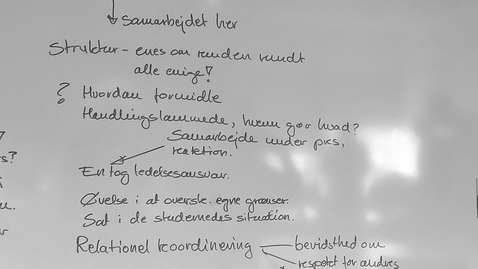 samarbejdet her
Struktur - enes om runden rundt
alle enige!
? Hvordan formidle
Handlingslammede, hvem gør hvad?
Samarbejde under pres,
reaktion.
En tog ledelsesansvar.
Øvelse i at oversk. egne grænser.
Sat i de studerendes situation.
Relationel koordinering
bevidsthed om
respekt for andres